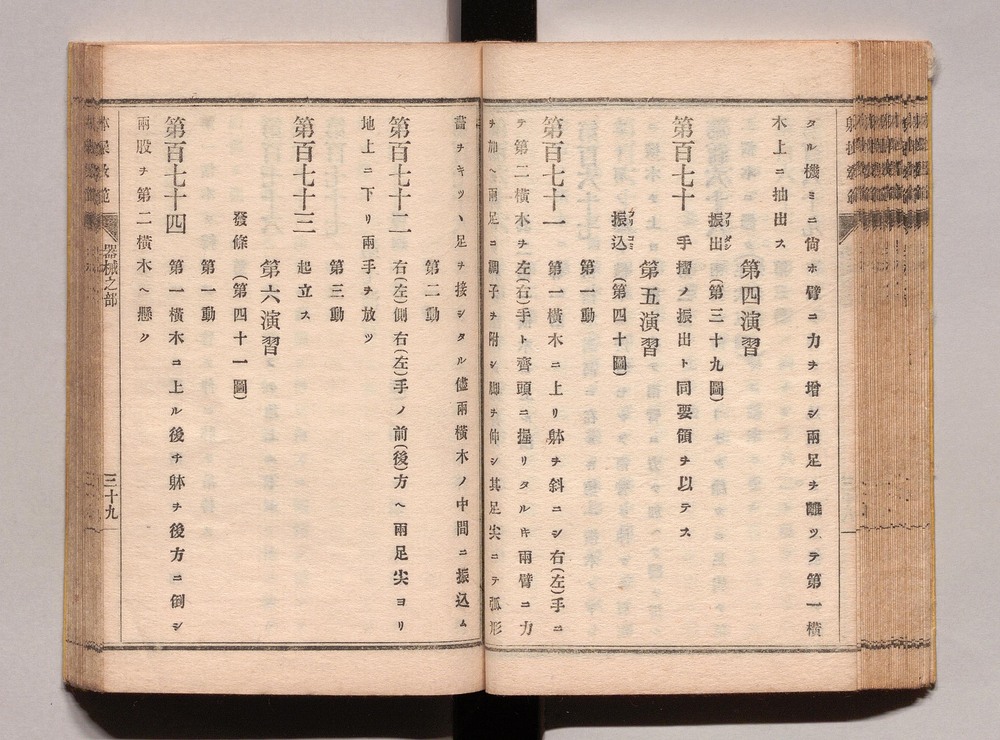 タル機ミニ尙ホ臂ニ力ヲ增シ兩足ヲ離ツテ第一橫
木上ニ抽出ス
第四演習
振出(第三十九圖)
フリダシ
第百七十 手摺ノ振出ト同要領ヲ以テス
第五演習
振込(第四十圖)
フリコミ
第一動
第百七十一 第一橫木ニ上リ躰ヲ斜ニシ右(左)手ニ
テ第二橫木ヲ左(右)手ト齊頭ニ握リタルキ兩臂ニ力
ヲ加ヘ兩足ニ調子ヲ附シ脚ヲ伸シ其足尖ニテ弧形
畵ヲキツヽ足ヲ接シタル儘兩橫木ノ中間ニ振込ム
第二動
第百七十二 右(左)側右(左)手ノ前(後)方ヘ兩足尖ヨリ
地上ニ下リ兩手ヲ放ツ
第三動
第百七十三 起立ス
第六演習
發條(第四十一圖)
第一動
第百七十四 第一橫木ニ上ル後チ躰ヲ後方ニ倒シ
兩股ヲ第二橫木ヘ懸ク
器械之部
三十九